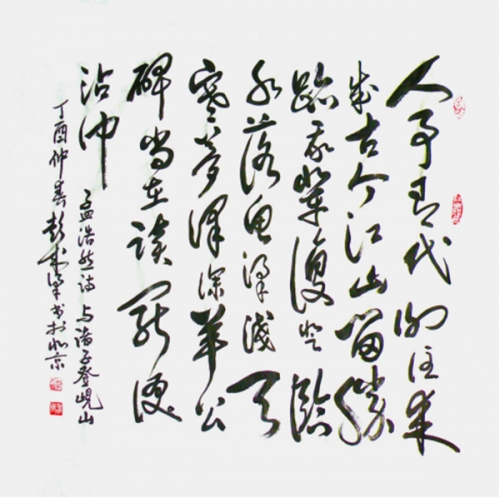 人事有代谢往来
成古今江山留胜
跡我辈復登临
水落鱼梁浅天
寒梦泽深羊公
碑尚在读罢泪
沾
孟浩然诗 与诸子登岘山
丁酉仲春彭书于北京